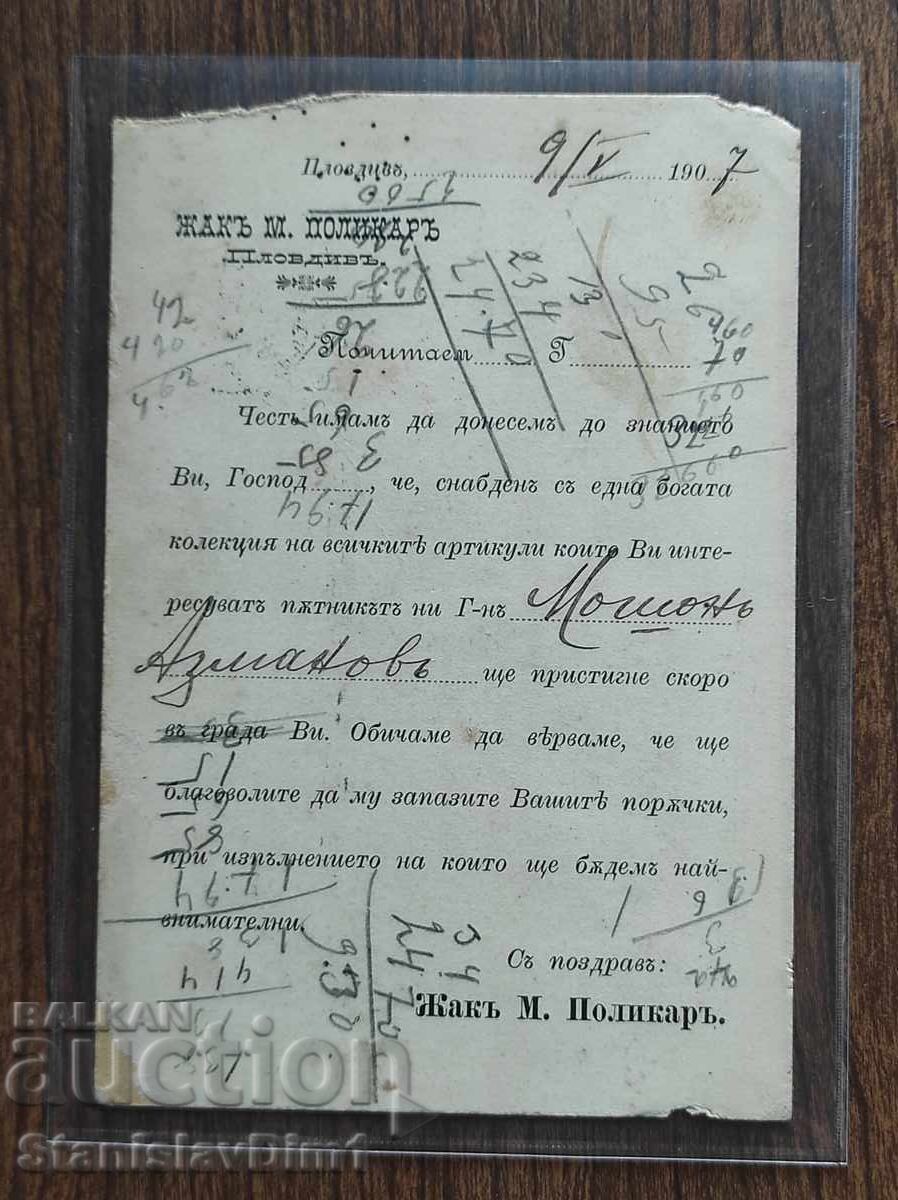 Пловдивъ, 9/V 1907
ЖАКЪ М. ПОЛИКАРЪ
Пловдивъ.
Почитаем........ Г
Честь имамъ да донесемъ до знанието
Ви, Господ........, че, снабденъ съ една богата
колекция на всичкитѣ артикули които Ви инте-
ресуватъ пѫтникътъ ни Г-нъ
Азмановъ ще пристигне скоро
въ града Ви. Обичаме да вѣрваме, че ще
благоволите да му запазите Вашитѣ порѫчки,
при изпълнението на които ще бѫдемъ най-
внимателни.
Съ поздравъ:
Жакъ М. Поликаръ.
42
420
70
234
24.70
95
17.94
17.94
9.30
2470
414
BALKAN
auction
StanislavDim1